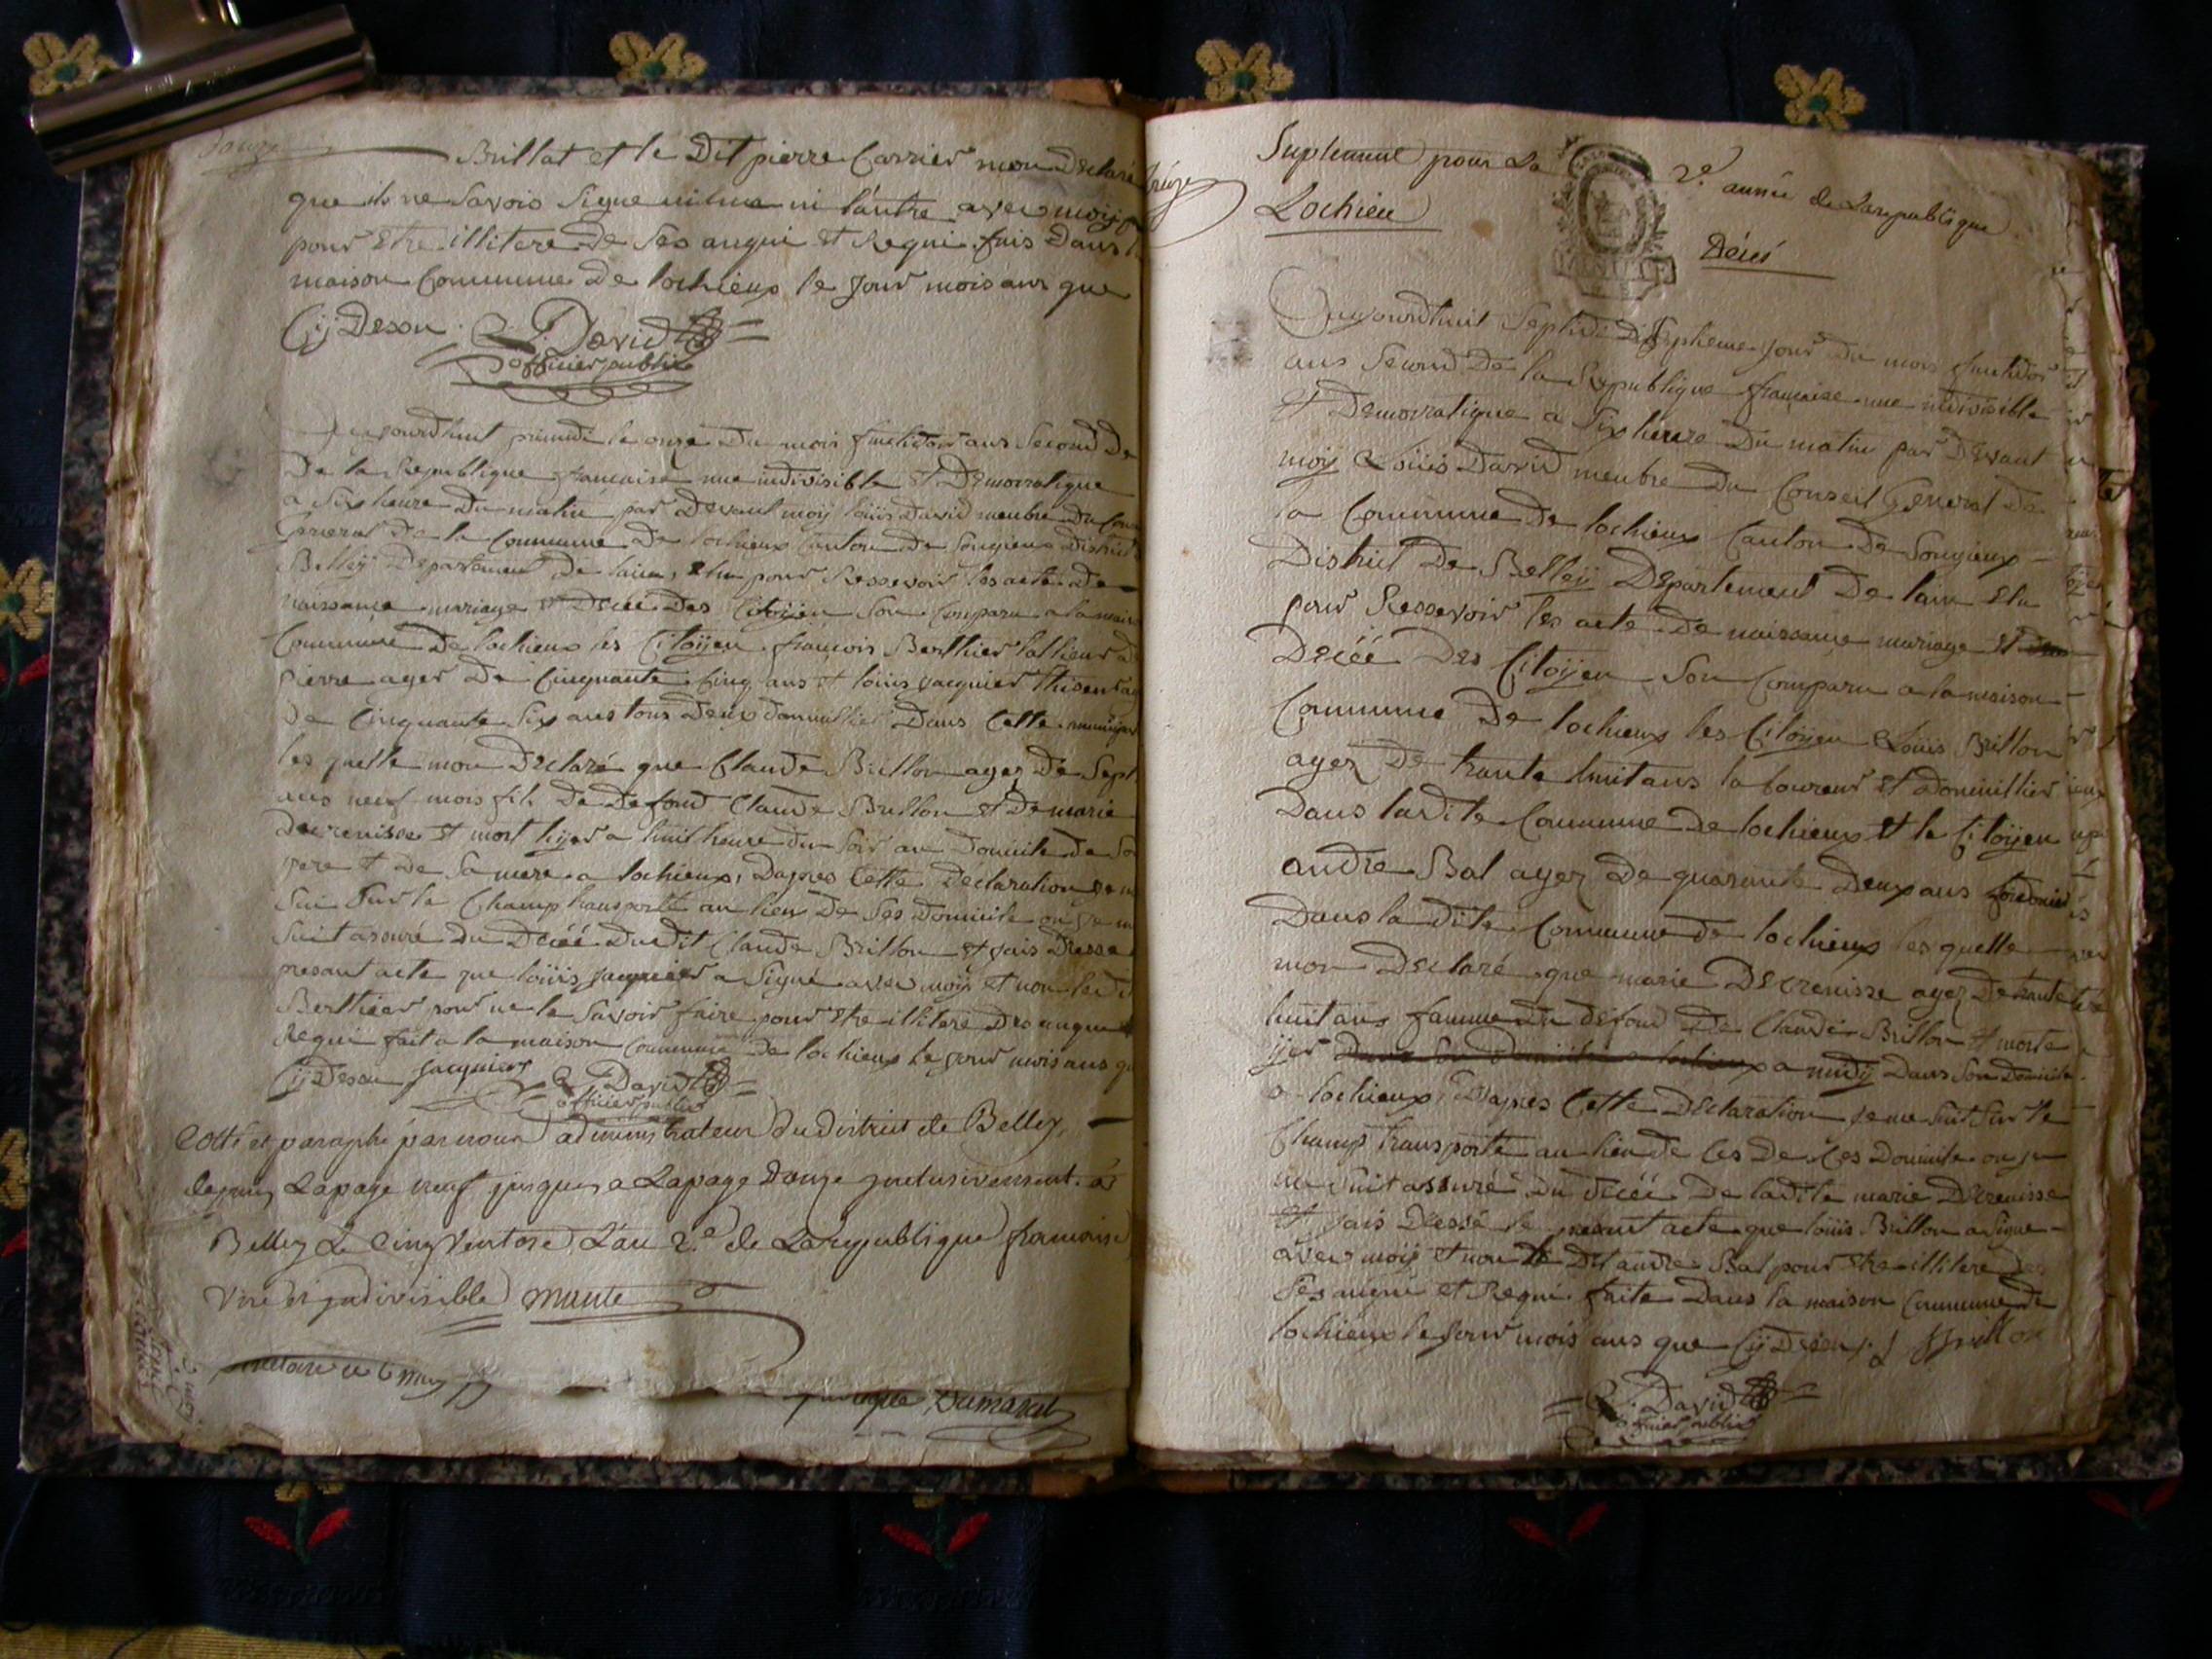 Douze
Brillat et le Dit pierre Carrier mon Declaré
que il ne Savois Signe ni lun ni lautre avec moij
pour Etre illitere de Ses anqui et Requi fais Dans
maison Commune De lochieux le jour mois ans que
Cij Desou L. David
officier public
Aujourdhuit primidi le onze Du mois fructidor ans Second De
De la Republique francaise une indivisible et Democratique
a Six heure Du matin par Devant moij loüis David menbre Du Con
General De la Commune De lochieux Canton De Songieux District
Belleij Departement De lain, Elu pour Ressevoir les acte de
naissance mariage et Deceé Des Citoijen Son Comparu a la mais
Commune De lochieux les Citoijen françois Berthier
Pierre ager De Cinquante Cinq ans et loüis jacquier
De Cinquante Six ans tous Deux domicillier Dans Cette
les quelle mon Declaré que Claude Brillon agez De Sept
ans neuf mois fils De Defond Claude Brillon et De marie
Decrenisse et mort hijer a huit heure du Soir au Domicile De So
pere et De Sa mere a lochieux, Dapres Cette Declaration je m
Sui Sur le Champ transporté au lieu De Ses Domicile ou je m
Suit asouré du Deceé Dudit Claude Brillon et jais Dresse
presant acte que loüis jacquier a Signé avec moij et non le Dit
Berthier pour ne le Savoir faire pour Etre illiteré Des anque
Requi fait a la maison Commune De lochieux le jour mois ans q
Cij Desou jacquier L. David
officier public
Cotté et paraphé par nous administrateur du district de Belley,
depuis La page neuf jusques a La page Douze inclusivement. á
Belley Le Cinq Ventose L'an 2.e de La republique francaise
Une et indivisible
Dumarest
treize
Suplement pour La 2.e année de La republique
Lochieu
MINUTE
Décés
Aujourdhuit Septidi Disseptieme jour Du mois fructidor
ans Second De la Republique française une indivisible
et Democratique a Six heure Du matin par Devant
moij Loüis David menbre Du Conseil General De
la Commune De lochieux Canton De Songieux
District De Belleij Departement De lain Elu
pour Ressevoir les acte De naissance mariage et
Deceé Des Citoijen Son Comparu a la maison
Commune De lochieux les Citoijen Loüis Brillon
agez De trante huit ans laboureur et Domicillier
Dans ladite Commune De lochieux et le Citoijen
andre Bal agez De quarante Deux ans
Dans la dite Commune De lochieux les quelle
mon Declaré que marie Decrenisse agez De trante
huit ans famme du défond De Claude Brillon et morte
ijer Dans Son Domicile a lochieux a midij Dans Son Domicile
a lochieux, Dapres Cette Declaration je me Suit Sur le
Champ transporté au lieu de Ces De Ces Domicile ou je
me Suit assuré Du deceé De ladite marie Decrenisse
et jais Dressé le presant acte que loüis Brillon a Signe
avec moij et non le Dit andre Bal pour Etre illitere De
Ses anqui et Requi faite Dans la maison Commune De
lochieux le jour mois ans que Cij Desou L Brillon
L. David
officier public